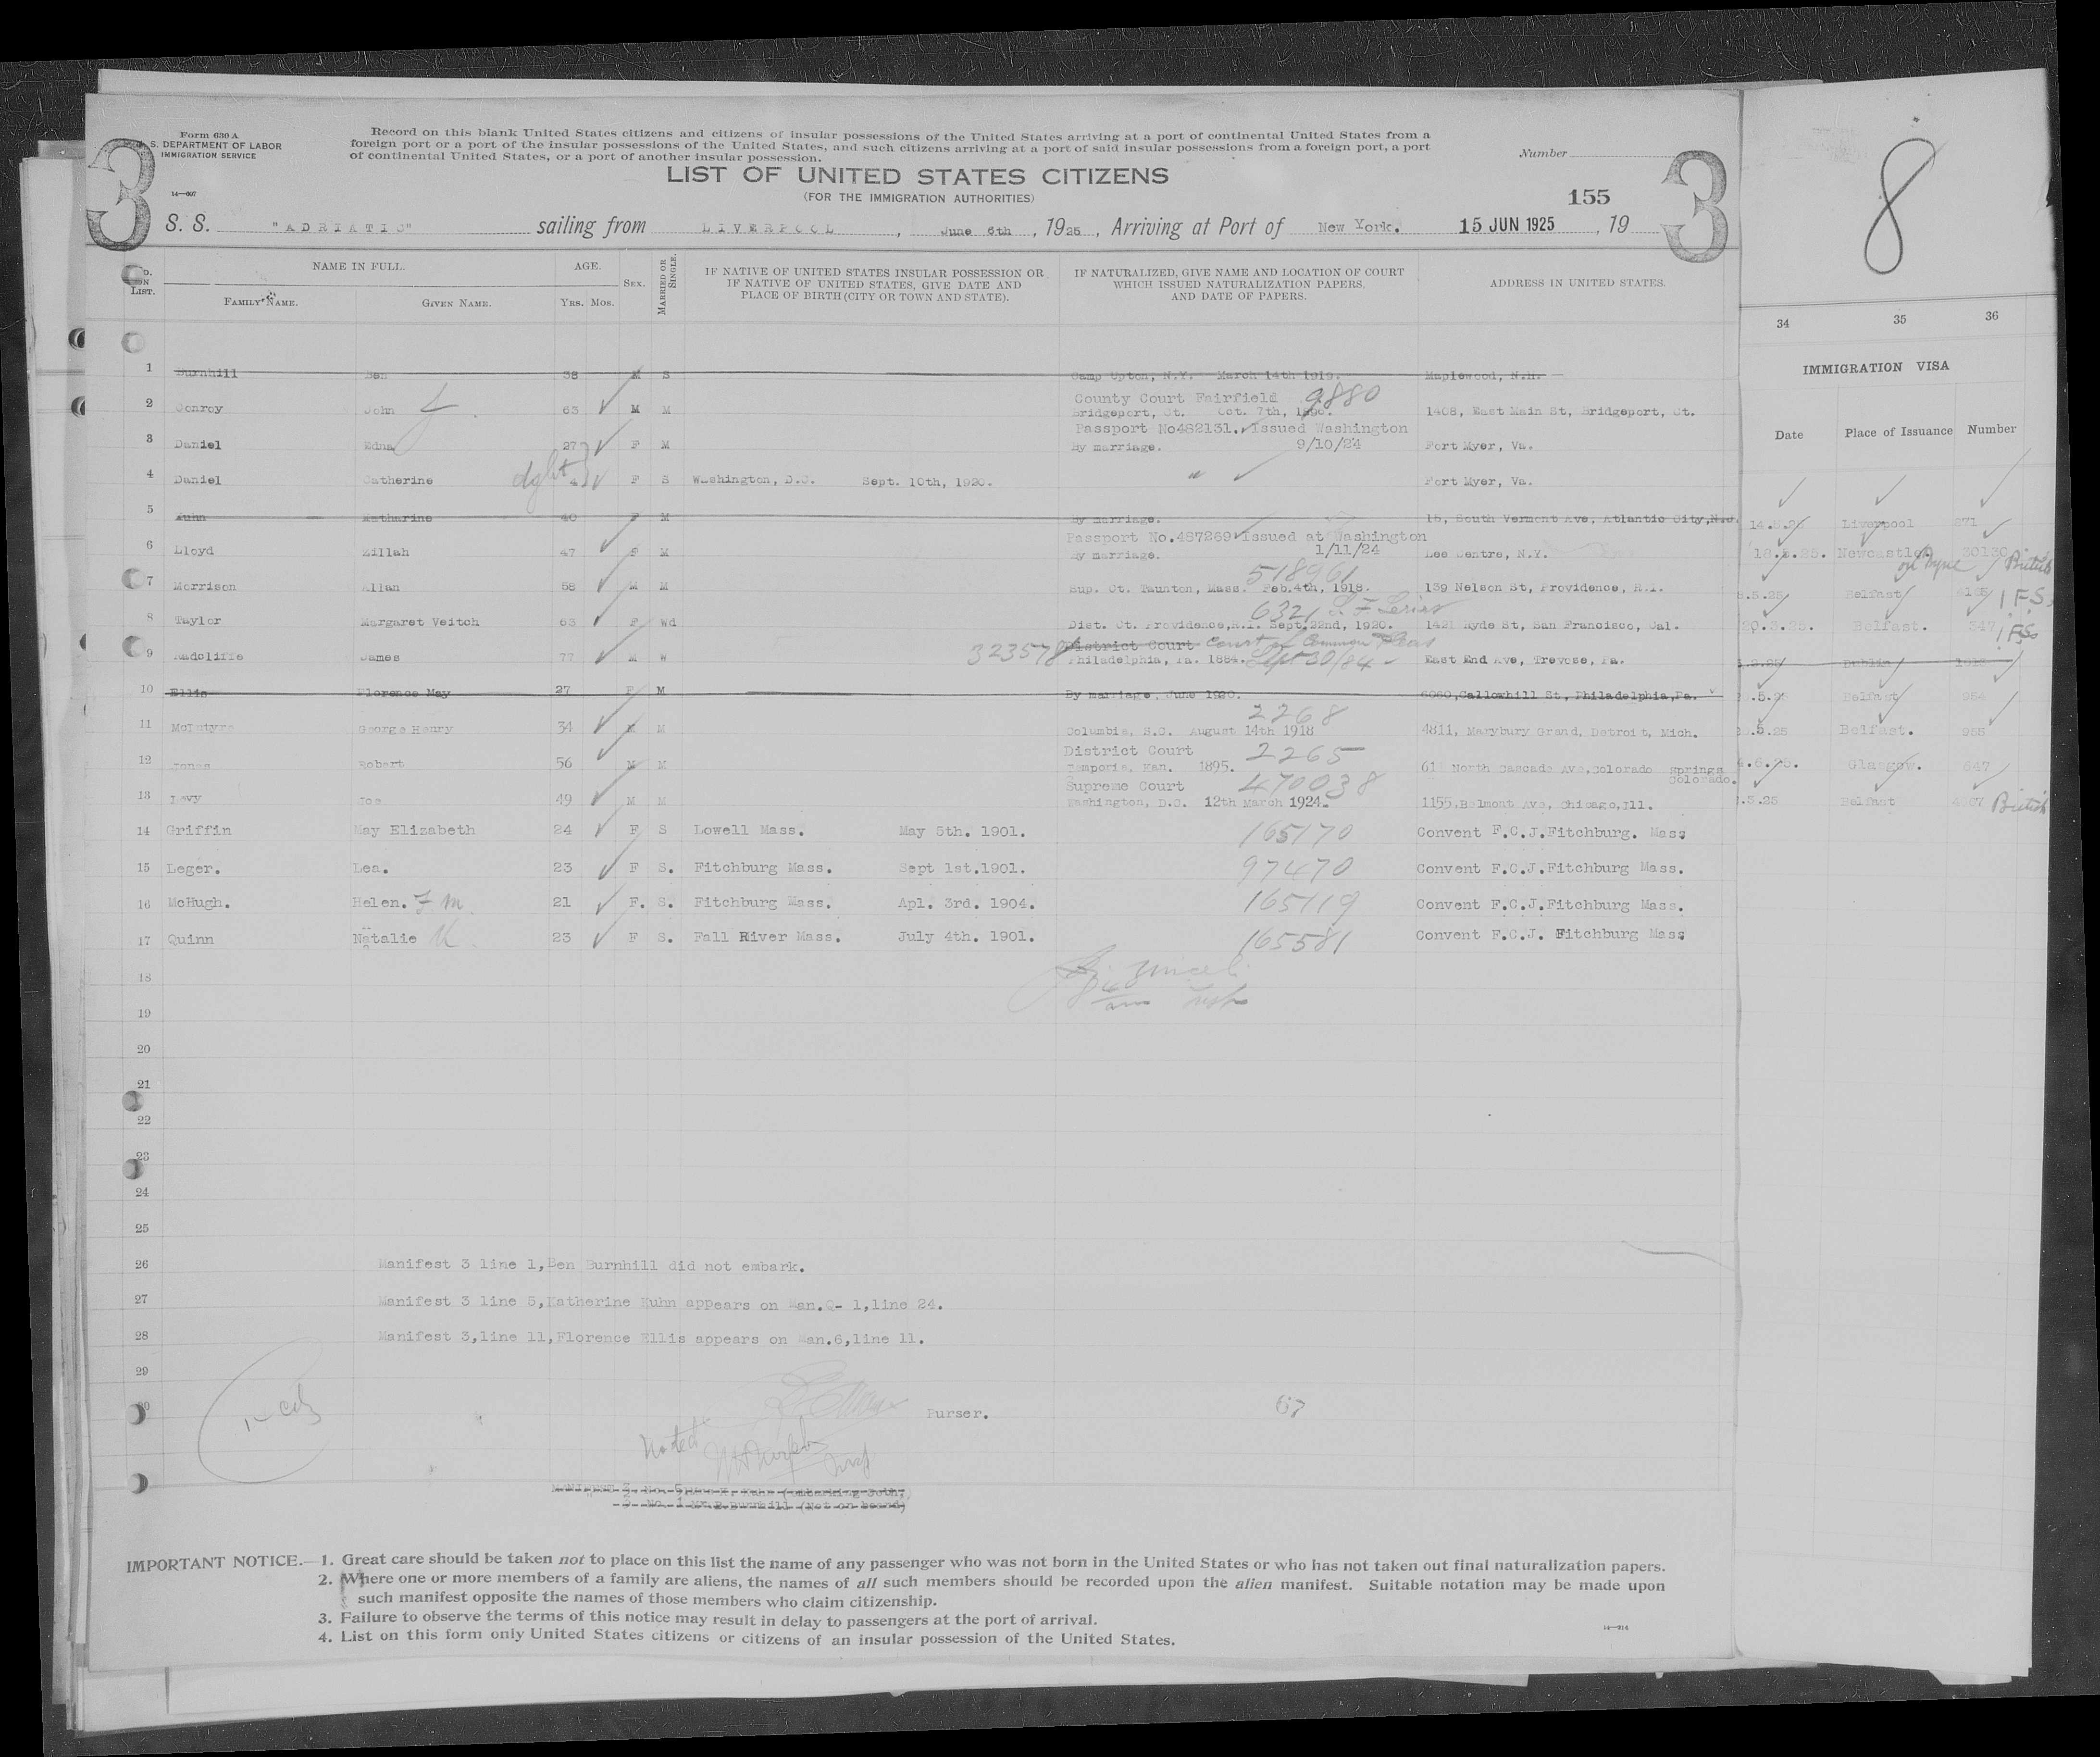 Form 630 A
U. S. DEPARTMENT OF LABOR
IMMIGRATION SERVICE
14—607
Record on this blank United States citizens and citizens of insular possessions of the United States arriving at a port of continental United States from a
foreign port or a port of the insular possessions of the United States, and such citizens arriving at a port of said insular possessions from a foreign port, a port
of continental United States, or a port of another insular possession.
Number
3
LIST OF UNITED STATES CITIZENS
(FOR THE IMMIGRATION AUTHORITIES)
155
3
8
S. S. "ADRIATIC" sailing from LIVERPOOL, June 6th, 1925, Arriving at Port of New York. 15 JUN 1925, 19
NO. ON LIST. NAME IN FULL. FAMILY NAME. GIVEN NAME. AGE. YRS. MOS. SEX. MARRIED OR SINGLE.
IF NATIVE OF UNITED STATES INSULAR POSSESSION OR
IF NATIVE OF UNITED STATES, GIVE DATE AND
PLACE OF BIRTH (CITY OR TOWN AND STATE).
IF NATURALIZED, GIVE NAME AND LOCATION OF COURT
WHICH ISSUED NATURALIZATION PAPERS,
AND DATE OF PAPERS.
ADDRESS IN UNITED STATES.
34 35 36
IMMIGRATION VISA
Date Place of Issuance Number
1 Burnhill Ben 38 M S Camp Upton, N.Y. March 14th 1919. Maplewood, N.H.
County Court Fairfield 9880
2 Conroy John J. 63 M M Bridgeport, Ct. Oct. 7th, 1890. 1408, East Main St, Bridgeport, Ct.
Passport No482131. Issued Washington
3 Daniel Edna 27 F M By marriage. 9/10/24 Fort Myer, Va.
4 Daniel Catherine dght 4 F S Washington, D.C. Sept. 10th, 1920. " Fort Myer, Va.
5 Kuhn Katharine 40 F M By marriage. 15, South Vermont Ave, Atlantic City, N.J.
14.5.25 Liverpool 371
Passport No.487269 Issued at Washington
6 Lloyd Zillah 47 F M By marriage. 1/11/24 Lee Centre, N.Y.
18.5.25. Newcastle on Tyne 30130 British
518961
7 Morrison Allan 58 M M Sup. Ct. Taunton, Mass. Feb.4th, 1918. 139 Nelson St, Providence, R.I.
Belfast 1 F.S.
6321 S.F Series
8 Taylor Margaret Veitch 63 F Wd Dist. Ct. Providence, R.I. Sept. 22nd, 1920. 1421 Hyde St, San Francisco, Cal.
Belfast. 347 1 FS.
323578 District Court Court of Common Pleas
9 Radcliffe James 77 M W Philadelphia, Pa. 1884. Sept 30/84 - East End Ave, Trevose, Pa.
Dublin
10 Ellis Florence May 27 F M By marriage, June 1920. 6060, Callowhill St, Philadelphia, Pa.
Belfast 954
2268
11 McIntyre George Henry 34 M M Columbia, S.C. August 14th 1918 4811, Marybury Grand, Detroit, Mich.
Belfast. 955
District Court 2265
12 Jones Robert 56 M M Emporia, Kan. 1895. 61 North Cascade Ave, Colorado Springs Colorado.
Glasgow. 647
Supreme Court 470038
13 Levy Joe 49 M M Washington, D.C. 12th March 1924. 1155, Belmont Ave, Chicago, Ill.
Belfast British
14 Griffin May Elizabeth 24 F S Lowell Mass. May 5th. 1901. 165170 Convent F.C.J. Fitchburg. Mass
15 Leger. Lea. 23 F S. Fitchburg Mass. Sept 1st.1901. 97470 Convent F.C.J. Fitchburg Mass.
16 McHugh. Helen. F M. 21 F. S. Fitchburg Mass. Apl. 3rd. 1904. 165119 Convent F.C.J. Fitchburg Mass.
17 Quinn Natalie K. 23 F S. Fall River Mass. July 4th. 1901. 165581 Convent F.C.J. Fitchburg Mass
18
19
20
21
22
23
24
25
26 Manifest 3 line 1, Ben Burnhill did not embark.
27 Manifest 3 line 5, Katherine Kuhn appears on Man.Q- 1, line 24.
28 Manifest 3, line 11, Florence Ellis appears on Man.6, line 11.
29
30 Purser. 67
Noted
MANIFEST 3. No. 5, Mrs K. Kuhn (embarking Soth.)
3 No. 1 Mr. B. Burnhill (Not on board)
IMPORTANT NOTICE.—1. Great care should be taken not to place on this list the name of any passenger who was not born in the United States or who has not taken out final naturalization papers.
2. Where one or more members of a family are aliens, the names of all such members should be recorded upon the alien manifest. Suitable notation may be made upon
such manifest opposite the names of those members who claim citizenship.
3. Failure to observe the terms of this notice may result in delay to passengers at the port of arrival.
4. List on this form only United States citizens or citizens of an insular possession of the United States.
14—914